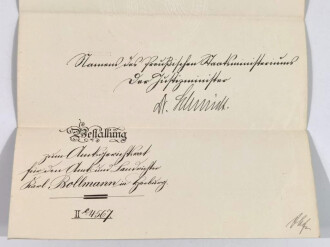 Namens des Preußischen Staatsministeriums
Der Justizminister
Dr. Schmidt.
Bestallung
zum Amtsgerichtsrat
für den Amts- und Landrichter
Karl Bollmann in Harburg.
II a 4567